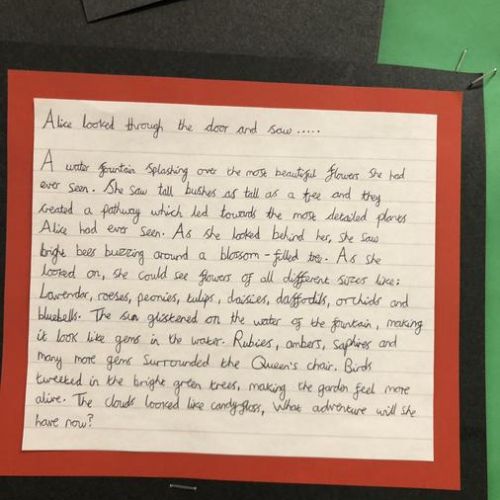 Alice looked through the door and saw.....
A water fountain splashing over the most beautiful flowers she had
ever seen. She saw tall bushes as tall as a tree and they
created a pathway which led towards the most detailed plants
Alice had ever seen. As she looked behind her, she saw
bright bees buzzing around a blossom-filled tree. As she
looked on, she could see flowers of all different sizes like:
Lavendar, roeses, peonies, tulips, daisies, daffodils, orchids and
bluebells. The sun glistened on the water of the fountain, making
it look like gems in the water. Rubies, ambers, saphires and
many more gems surrounded the Queen's chair. Birds
tweeted in the bright green trees, making the garden feel more
alive. The clouds looked like candyfloss, What adventure will she
have now?